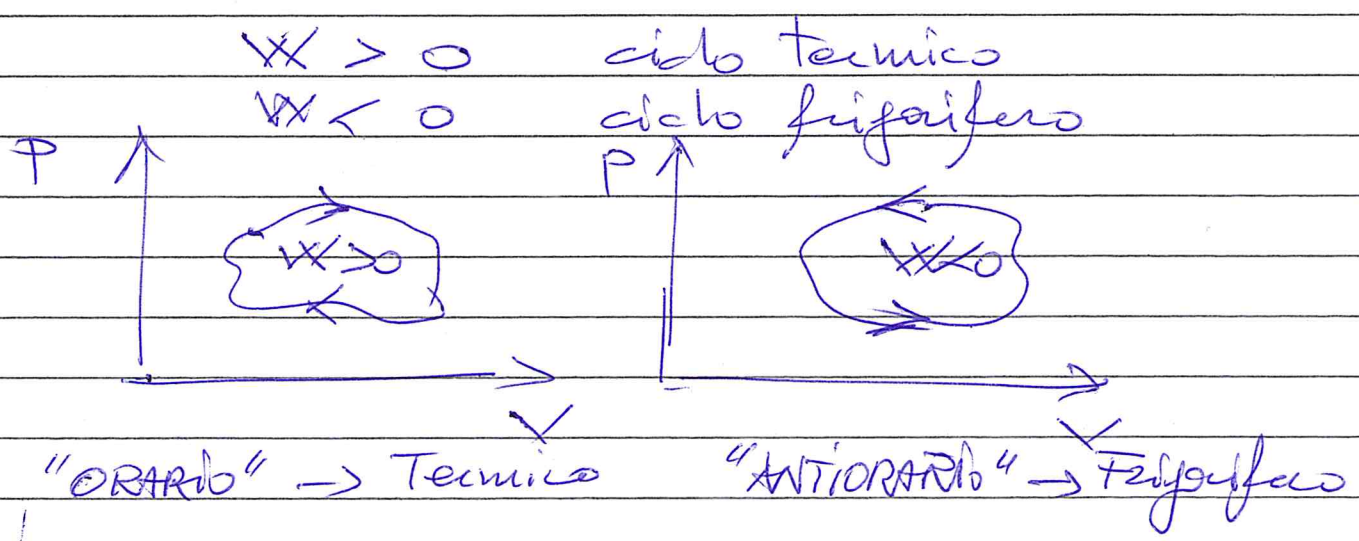 W > 0 ciclo termico
W < 0 ciclo frigorifero
P P
W>0 W<0
V V
"ORARIO" -> Termico "ANTIORARIO" -> Frigorifero